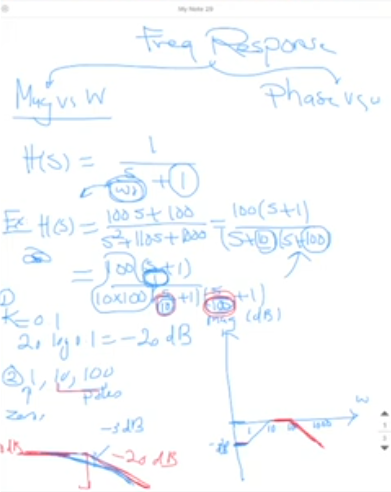 My Note 29
Freq Response
Mag vs W
Phase vs ω
H(S) = 1 / (s/ω₀ + 1)
Ex H(S) = (100S + 100) / (S² + 110S + 1000) = 100(S+1) / (S+10)(S+100)
= 100(s/1 + 1) / 10×100(s/10 + 1)(s/100 + 1)
① K = 0.1
20 log .1 = -20 dB
Mag (dB)
② 1, 10, 100
zero,
poles
-3dB
-20 dB
ω
1 10 100 1000